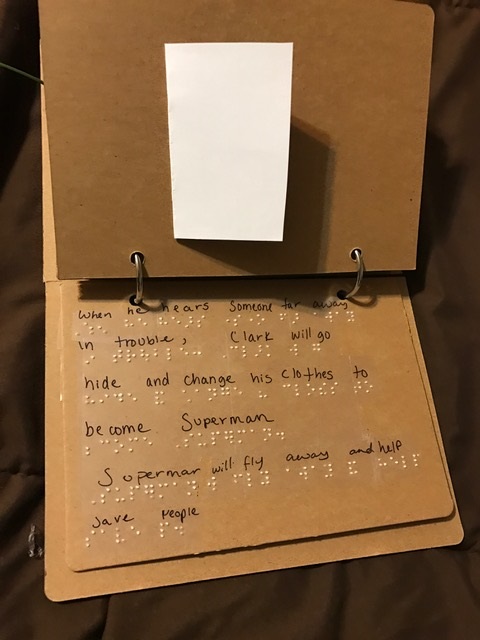 When he hears Someone far away
in trouble, Clark will go
hide and change his clothes to
become Superman
Superman will fly away and help
save People